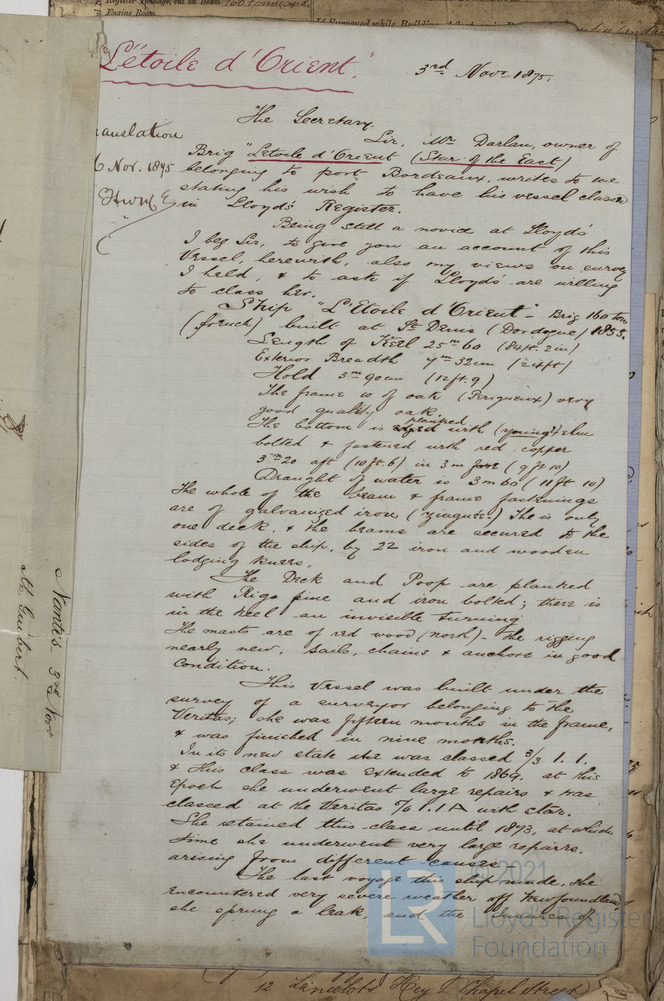 Register Tonnage, cut on Beam 160 Tons
Engine Room
If Surveyed while Building, Afloat, or in
"L'étoile d'Orient".
3rd Novr 1875.
The Secretary.
Translation
6 Nov. 1875
Sir, Mr Darlan, owner of
Brig "L'etoile d'Orient (Star of the East)
belonging to port Bordeaux, writes to me
stating his wish to have his vessel classed
in Lloyds Register.
Being still a novice at Lloyds'
I beg Sir, to give you an account of this
Vessel, herewith, also my views on survey
I held, & to ask if Lloyds' are willing
to class her.
Ship "L'Etoile d'Orient" - Brig 160 ton
(french) built at St Denis (Dordogne) 1855.
Length of Keel 25m 60 (84ft. 2in)
Exterior Breadth 7m 32cm (24ft)
Hold 3m 90cm (12ft. 9)
The frame is of oak (Perigueux) very
good quality oak.
The bottom is planked with (young) elm
bolted & fastened with red copper
3m 20 aft (10ft. 6) in 3m fore (9ft 10)
Draught of water is 3m 60 (11ft 10)
The whole of the beam & frame fastenings
are of galvanized iron (zingué.) She is only
one deck, & the beams are secured to the
sides of the ship, by 22 iron and wooden
lodging knees.
The Deck and Poop are planked
with Riga pine and iron bolted; there is
in the keel an invisible turning
The masts are of red wood (north) - the rigging
nearly new, sails, chains & anchors in good
condition.
This Vessel was built under the
survey of a surveyor belonging to the
Veritas; she was fifteen months in the frame,
& was finished in nine months.
In its new state she was classed 3/3 1. 1.
& this class was extended to 1864, at this
Epoch she underwent large repairs & was
classed at the Veritas 5/6 1.1 A with star.
She retained this class until 1873, at which
time she underwent very large repairs,
arising from different causes
The last voyage this ship made, she
encountered very severe weather off Newfoundland
she sprung a leak, and the
Nantes 3rd Novr
M. Guibert.
LR
© 2021
Lloyd's Register
Foundation
12 Lancelots Hey & Chapel Street